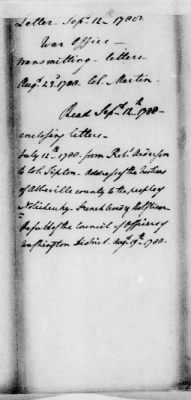 Letter Sepr. 12th 1788.
War Office
transmitting letters
Augt. 23d. 1788. Col. Martin
Read Sepr. 12th 1788
enclosing letters
July 12th 1788. from Robt. Anderson
to Col. Sipton. Address of the Justices
of Abbeville county to the people of
Nolichucky. French broad & Holstein
Result of the Council of Officers of
Washington District. Augt. 19th. 1788.